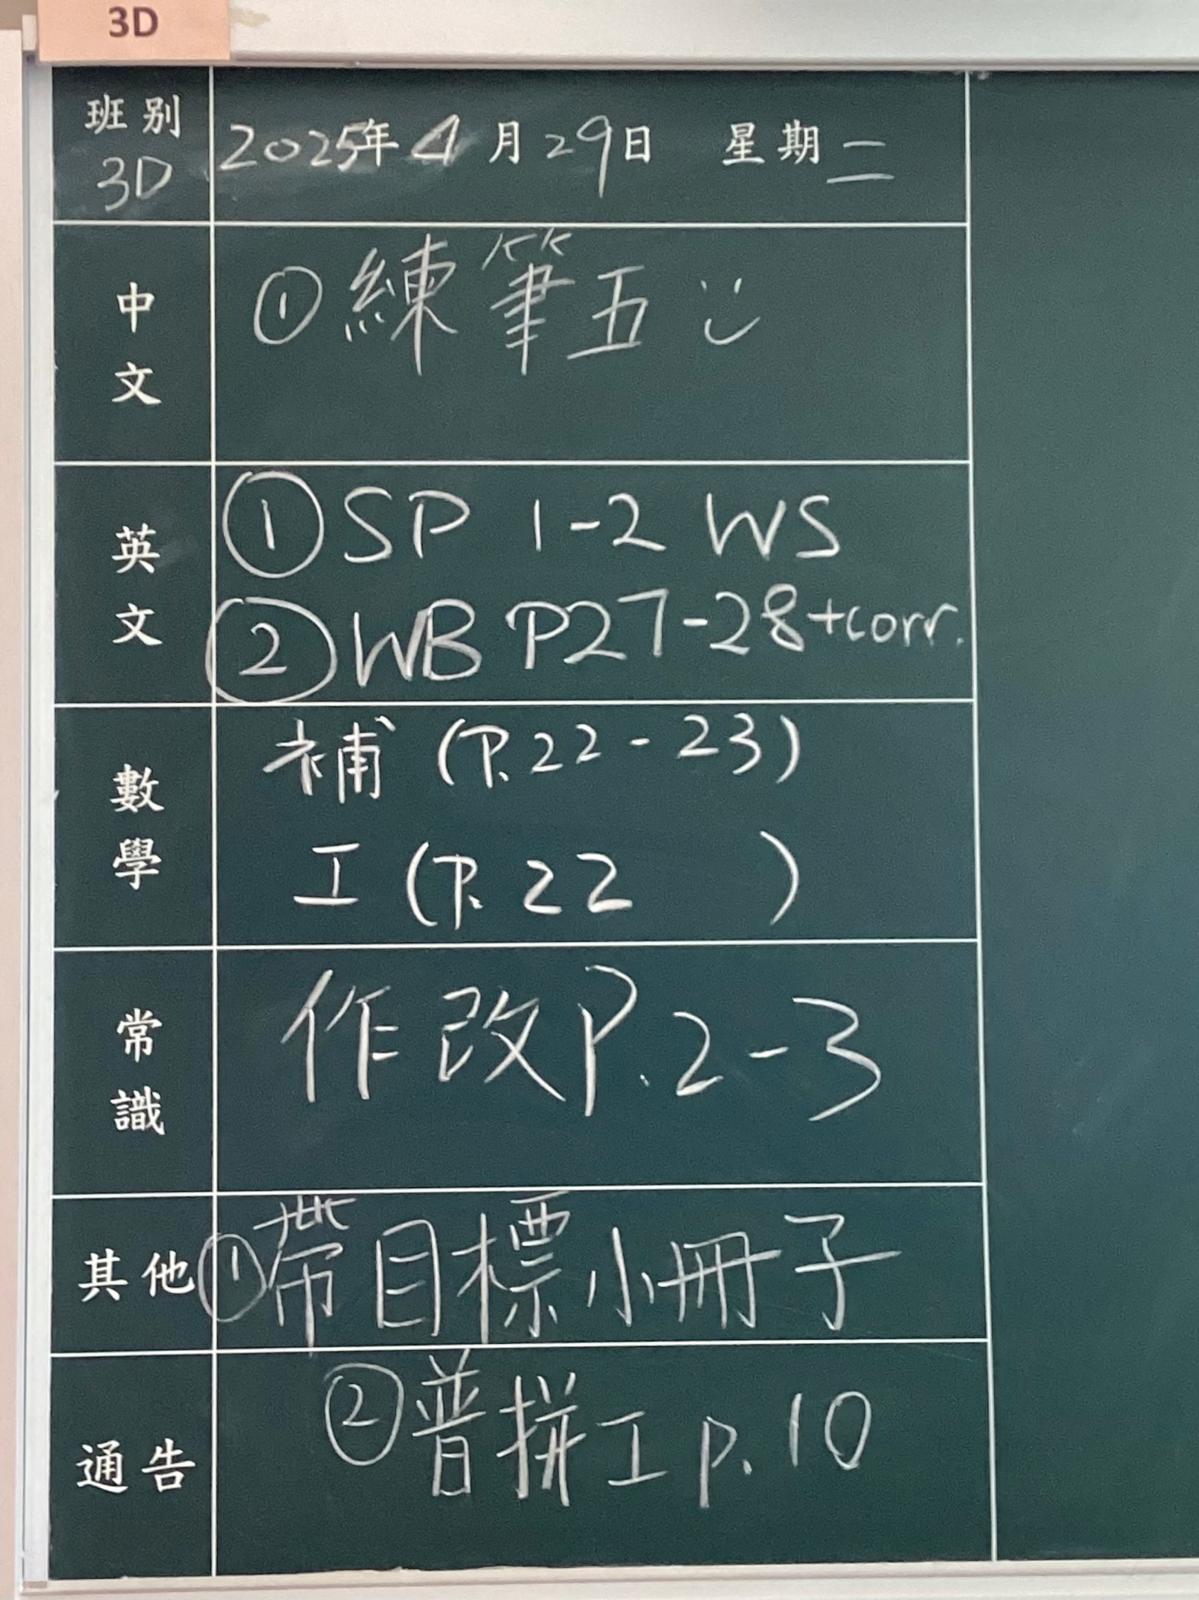 3D
班別 3D 2025年4月29日 星期二
中文 ①練筆五
英文 ①SP 1-2 WS
②WB P27-28+corr.
數學 補(P.22-23)
工(P.22 )
常識 作改P.2-3
其他 ①帶目標小冊子
通告 ②普拼工p.10